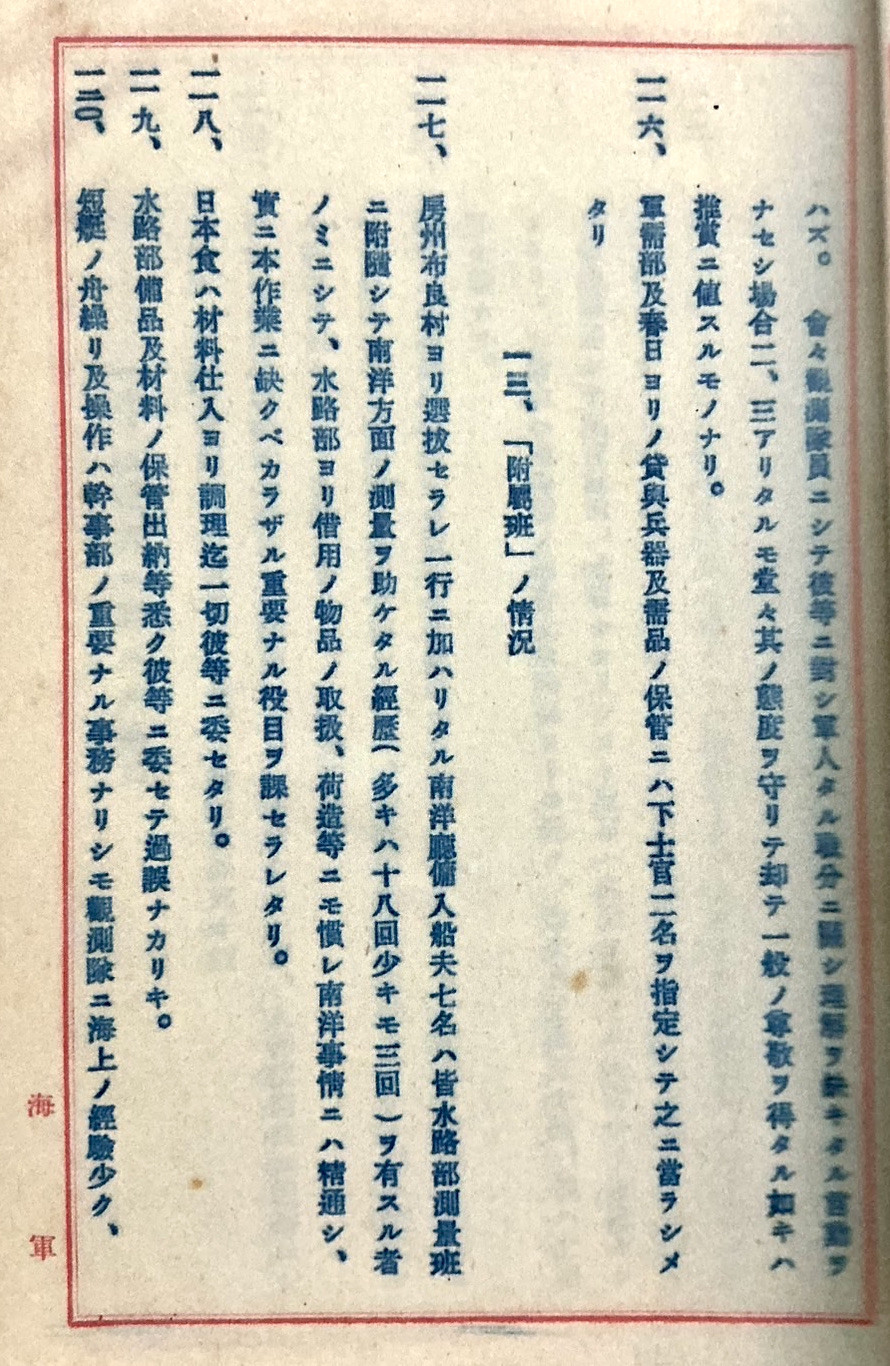 ハズ。 會々觀測隊員ニシテ彼等ニ對シ軍人タル職分ニ關シ理解ヲ缺キタル言動ヲ
ナセシ場合二、三アリタルモ堂々其ノ態度ヲ守リテ却テ一般ノ尊敬ヲ得タル如キハ
推賞ニ値スルモノナリ。
一一六、 軍需部及春日ヨリノ貸與兵器及需品ノ保管ニハ下士官二名ヲ指定シテ之ニ當ラシメ
タリ
一三、「附屬班」ノ情況
一一七、 房州布良村ヨリ選拔セラレ一行ニ加ハリタル南洋廳傭入船夫七名ハ皆水路部測量班
ニ附隨シテ南洋方面ノ測量ヲ助ケタル經歷(多キハ十八回少キモ三回)ヲ有スル者
ノミニシテ、水路部ヨリ借用ノ物品ノ取扱、荷造等ニモ慣レ南洋事情ニハ精通シ、
實ニ本作業ニ缺クベカラザル重要ナル役目ヲ課セラレタリ。
一一八、 日本食ハ材料仕入ヨリ調理迄一切彼等ニ委セタリ。
一一九、 水路部備品及材料ノ保管出納等悉ク彼等ニ委セテ過誤ナカリキ。
一二〇、 短艇ノ舟繰リ及操作ハ幹事部ノ重要ナル事務ナリシモ觀測隊ニ海上ノ經驗少ク、
海軍